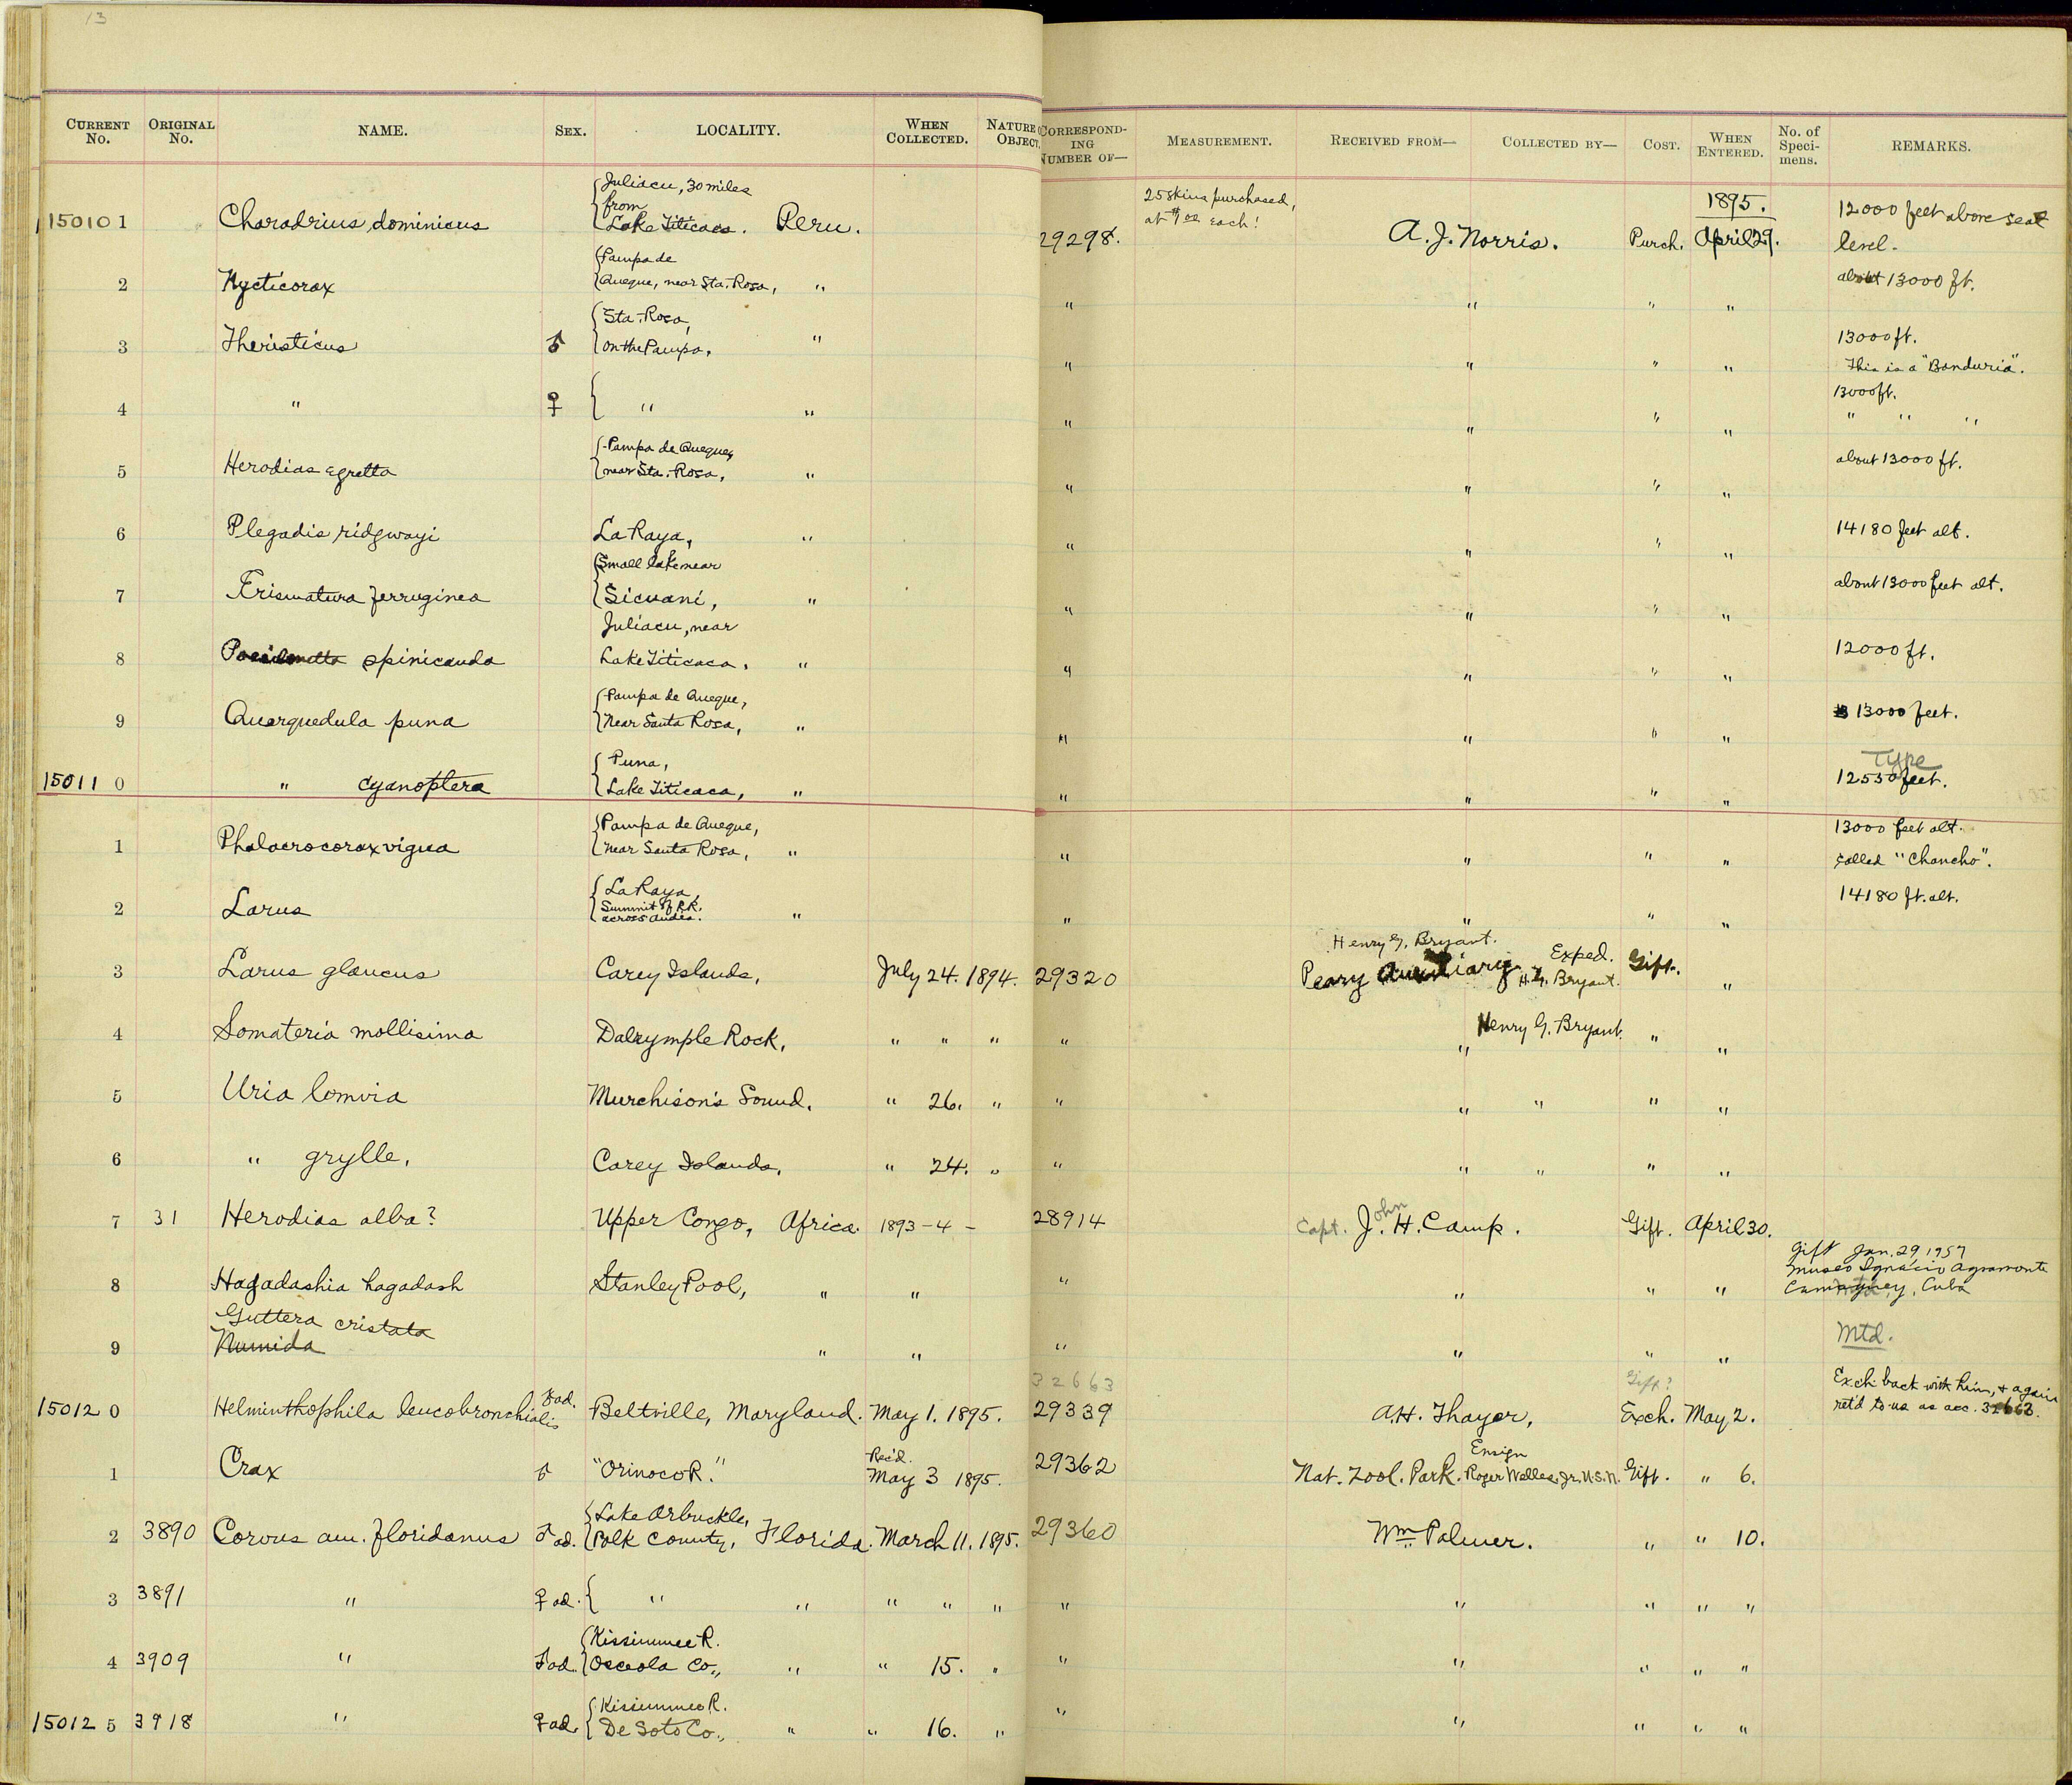 13
CURRENT No. ORIGINAL No. NAME. SEX. LOCALITY. WHEN COLLECTED. NATURE O OBJECT. CORRESPONDING NUMBER OF— MEASUREMENT. RECEIVED FROM— COLLECTED BY— COST. WHEN ENTERED. No. of Specimens. REMARKS.
150101 Charadrius dominicus Juliacu, 30 miles from Lake Titicaca. Peru. 29298. 25 skins purchased, at $1.00 each! A. J. Norris. Purch. 1895. April 29. 12000 feet above sea level.
2 Nycticorax Pampa de Queque, near Sta. Rosa, " " " " " about 13000 ft.
3 Theristicus ♂ Sta. Rosa, on the Pampa, " " " " " 13000 ft. This is a "Banduria".
4 " ♀ " " " " " " 13000 ft. " " "
5 Herodias egretta Pampa de Queque, near Sta. Rosa, " " " " " about 13000 ft.
6 Plegadis ridgwayi La Raya, " " " " " 14180 feet alt.
7 Erismatura ferruginea Small lake near Sicuani, " " " " " about 13000 feet alt.
8 spinicauda Juliacu, near Lake Titicaca, " " " " " 12000 ft.
9 Querquedula puna Pampa de Queque, Near Santa Rosa, " " " " " 13000 feet.
150110 " cyanoptera Puna, Lake Titicaca, " " " " " Type 12550 feet.
1 Phalacrocorax vigua Pampa de Queque, Near Santa Rosa, " " " " " 13000 feet alt. called "Chancho".
2 Larus La Raya, Summit of R.R. across Andes. " " " " " 14180 ft. alt.
3 Larus glaucus Carey Islands, July 24. 1894. 29320 Henry G. Bryant. Peary Auxiliary Exped. H. G. Bryant. Gift. "
4 Somateria mollisima Dalrymple Rock, " " " " " Henry G. Bryant. " "
5 Uria lomvia Murchison's Sound. " 26. " " " " " "
6 " grylle, Carey Islands, " 24. " " " " " "
7 31 Herodias alba? Upper Congo, Africa. 1893-4- 28914 Capt. John H. Camp. Gift. April 30.
8 Hagadashia hagadash Stanley Pool, " " " " " " Gift Jan. 29, 1957 Museo Ignacio Agramonte Camaguey, Cuba
9 Guttera cristata Numida " " " " " " Mtd.
150120 Helminthophila leucobronchialis ♂ ad. Beltville, Maryland. May 1. 1895. 32663 29339 A.H. Thayer, Gift? Exch. May 2. Exch. back with him, & again ret'd to us as acc. 32663.
1 Crax ♂ "Orinoco R." Rec'd. May 3 1895. 29362 Nat. Zool. Park. Ensign Roger Welles, Jr. U.S.N. Gift. " 6.
2 3890 Corvus am. floridanus ♂ ad. Lake Arbuckle, Polk County, Florida. March 11. 1895. 29360 Wm. Palmer. " " 10.
3 3891 " ♀ ad. " " " " " " " " " "
4 3909 " ♂ ad. Kissimmee R. Osceola Co., " " 15. " " " " " "
150125 3918 " ♀ ad. Kissimmee R. De Soto Co., " " 16. " " " " " "